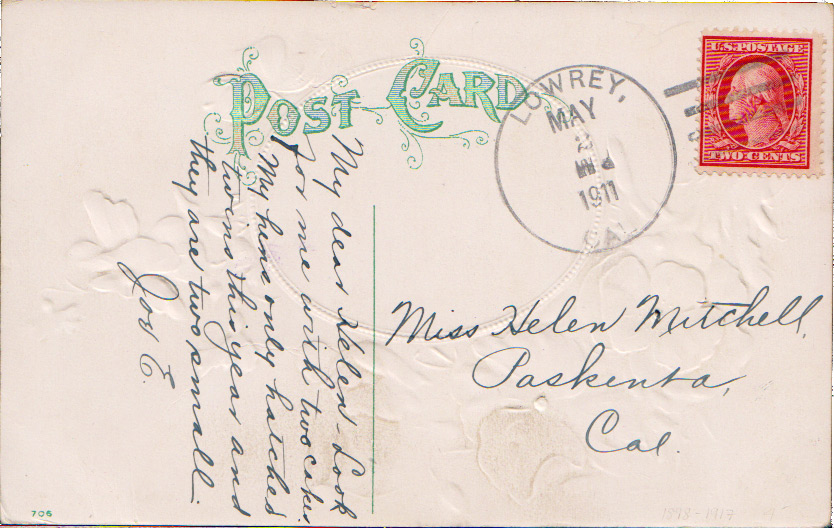 POST CARD
LOWREY,
MAY
2
1911
CAL.
U.S. POSTAGE
TWO CENTS
My dear Helen - Look
for me with two cakes.
My hens only hatched
twins this year and
they are two small.
Joe E.
Miss Helen Mitchell,
Paskenta,
Cal.
706
1898-1917